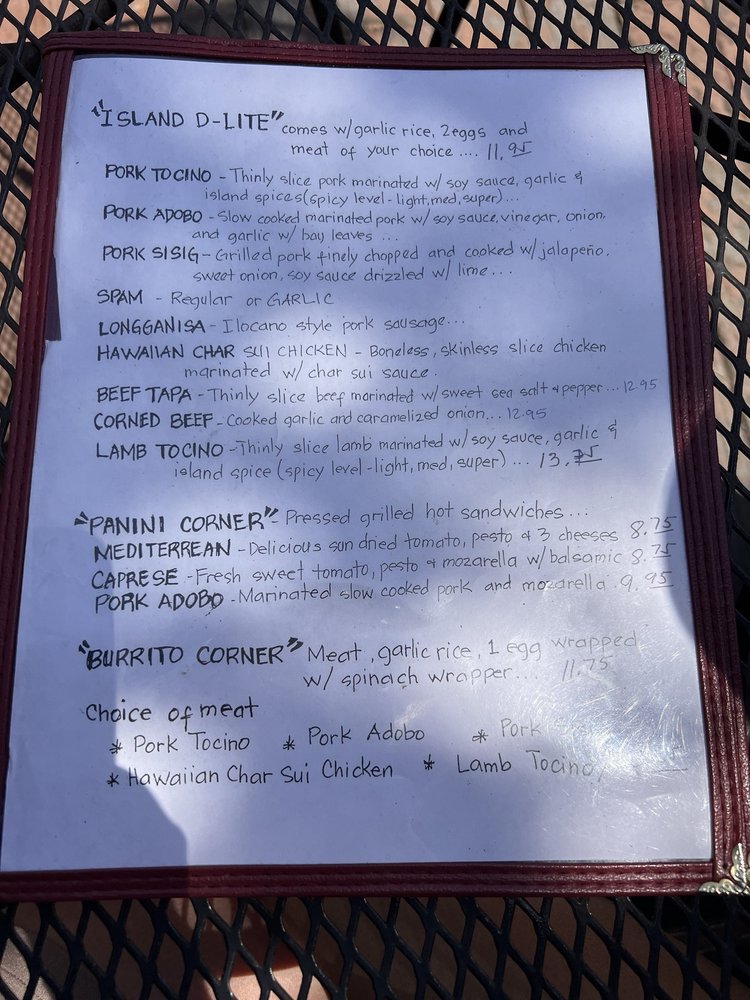 "ISLAND D-LITE" comes w/garlic rice, 2eggs and
meat of your choice .... 11.95
PORK TOCINO - Thinly slice pork marinated w/ soy sauce, garlic &
island spices (spicy level - light, med, super)...
PORK ADOBO - Slow cooked marinated pork w/ soy sauce, vinegar, onion,
and garlic w/ bay leaves ...
PORK SISIG - Grilled pork finely chopped and cooked w/ jalapeño,
sweet onion, soy sauce drizzled w/ lime...
SPAM - Regular or GARLIC
LONGGANISA - Ilocano style pork sausage...
HAWAIIAN CHAR SUI CHICKEN - Boneless, skinless slice chicken
marinated w/ char sui sauce.
BEEF TAPA - Thinly slice beef marinated w/ sweet sea salt & pepper... 12.95
CORNED BEEF - Cooked garlic and caramelized onion... 12.95
LAMB TOCINO - Thinly slice lamb marinated w/ soy sauce, garlic &
island spice (spicy level - light, med, super) ... 13.
"PANINI CORNER" - Pressed grilled hot sandwiches ...
MEDITERREAN - Delicious sun dried tomato, pesto & 3 cheeses 8.75
CAPRESE - Fresh sweet tomato, pesto & mozarella w/ balsamic 8.75
PORK ADOBO - Marinated slow cooked pork and mozarella 9.95
"BURRITO CORNER" Meat, garlic rice, 1 egg wrapped
w/ spinach wrapper.... 11.75
Choice of meat
* Pork Tocino * Pork Adobo * Pork
* Hawaiian Char Sui Chicken * Lamb Tocino